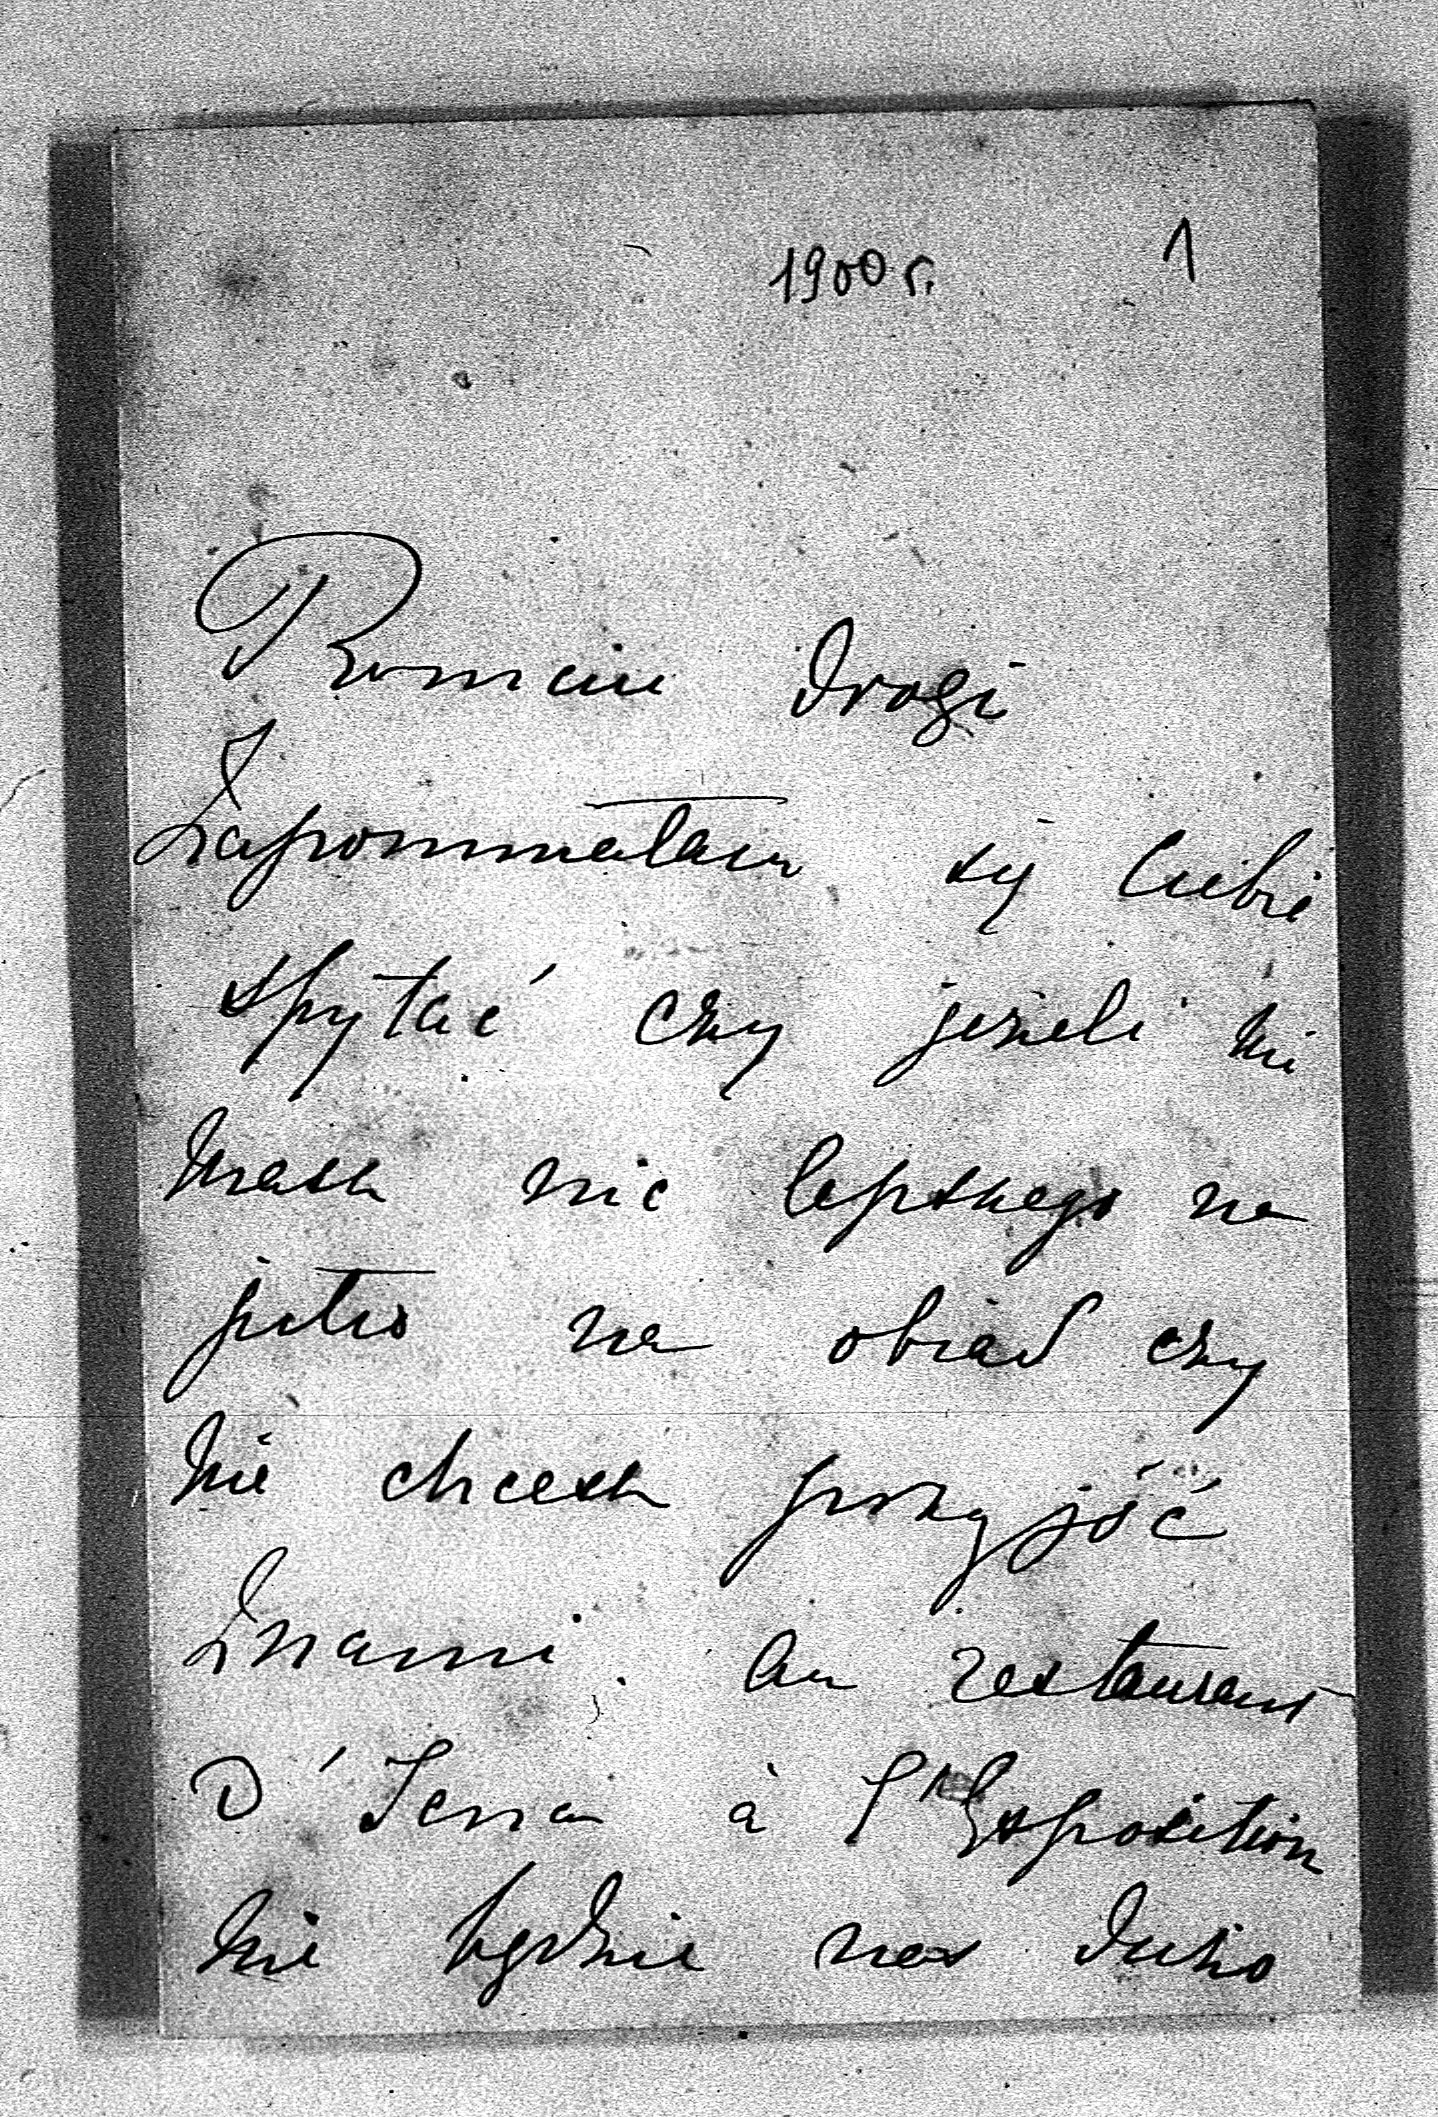 1900 г. 1
Romciu drogi
Zapomniałam się Ciebie
spytać czy jezeli nie
masz nic lepszego na
jutro na obiad czy
nie chcesz przyjść
Znami. Au restaurant
D'Iena à l'Exposition
nie będzie nas duzo